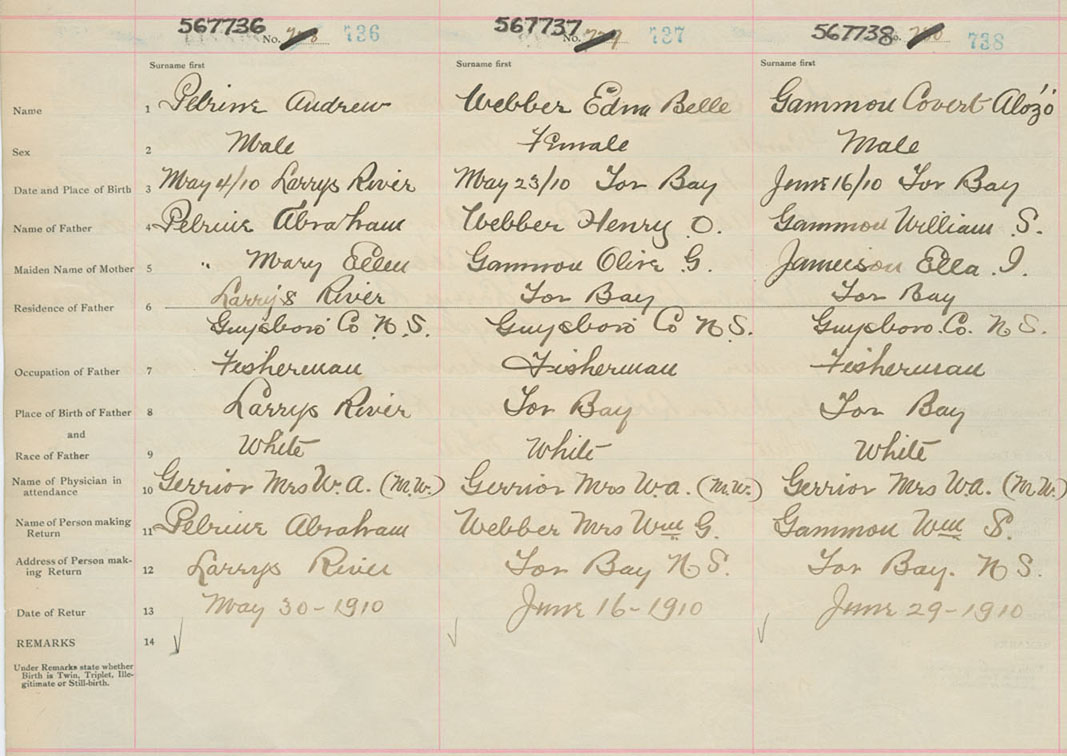 567736 No. 736 567737 No. 737 567738 No. 738
Surname first Surname first Surname first
Name 1 Pelrine Andrew Webber Edna Belle Gammon Covert Alozó
Sex 2 Male Female Male
Date and Place of Birth 3 May 4/10 Larrys River May 23/10 Tor Bay June 16/10 Tor Bay
Name of Father 4 Pelrine Abraham Webber Henry O. Gammon William S.
Maiden Name of Mother 5 " Mary Ellen Gammon Olive G. Jamieson Ella I.
Residence of Father 6 Larry's River Tor Bay Tor Bay
Guysboro Co N.S. Guysboro Co N S. Guysboro. Co. N S.
Occupation of Father 7 Fisherman Fisherman Fisherman
Place of Birth of Father 8 Larrys River Tor Bay Tor Bay
and
Race of Father 9 White White White
Name of Physician in
attendance 10 Gerrior Mrs W.A. (M.W.) Gerrior Mrs W.A. (M.W.) Gerrior Mrs W.A. (M.W.)
Name of Person making
Return 11 Pelrine Abraham Webber Mrs Wm G. Gammon Wm S.
Address of Person mak-
ing Return 12 Larrys River Tor Bay N S. Tor Bay. N S.
Date of Retur 13 May 30-1910 June 16-1910 June 29-1910
REMARKS 14
Under Remarks state whether
Birth is Twin, Triplet, Ille-
gitimate or Still-birth.